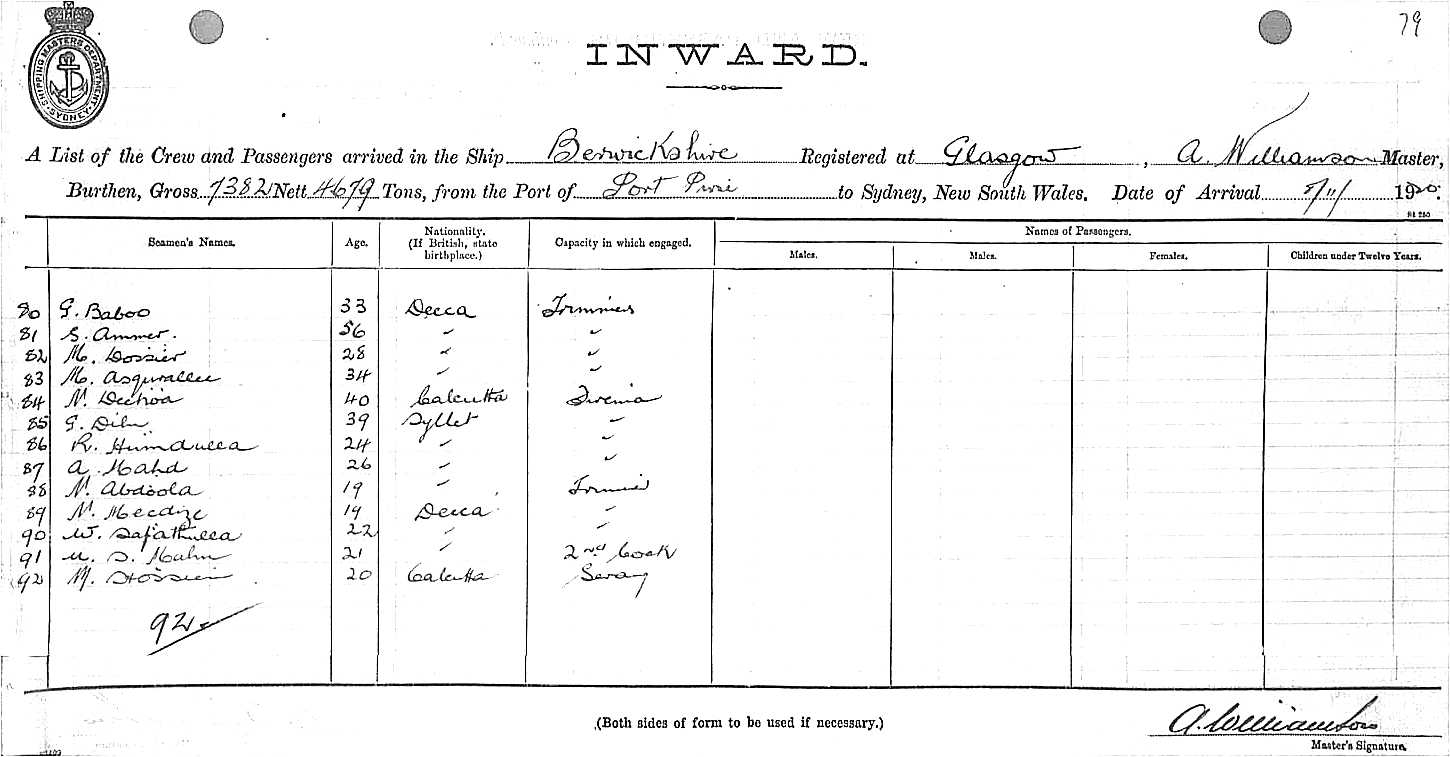 79
SHIPPING MASTERS DEPARTMENT SYDNEY
INWARD.
A List of the Crew and Passengers arrived in the Ship Berwickshire Registered at Glasgow, A. Williamson Master,
Burthen, Gross 7382 Nett 4679 Tons, from the Port of Port Pirie to Sydney, New South Wales. Date of Arrival 5/11/ 1920.
Seamen's Names. Age. Nationality. (If British, state birthplace.) Capacity in which engaged. Names of Passengers.
Males. Males. Females. Children under Twelve Years.
80 G. Baboo 33 Decca
81 S. Ammer. 56 " "
82 M. 28 " "
83 M. 34 " "
84 N. 40 Calcutta
85 G. 39 Syllet "
86 R. 24 " "
87 A. 26 " "
88 N. Abdoola 19 "
89 N. 19 Decca "
90 W. 22 " "
91 21 " 2nd Cook
92 M. 20 Calcutta
92
(Both sides of form to be used if necessary.)
A. Williamson
Master's Signature.